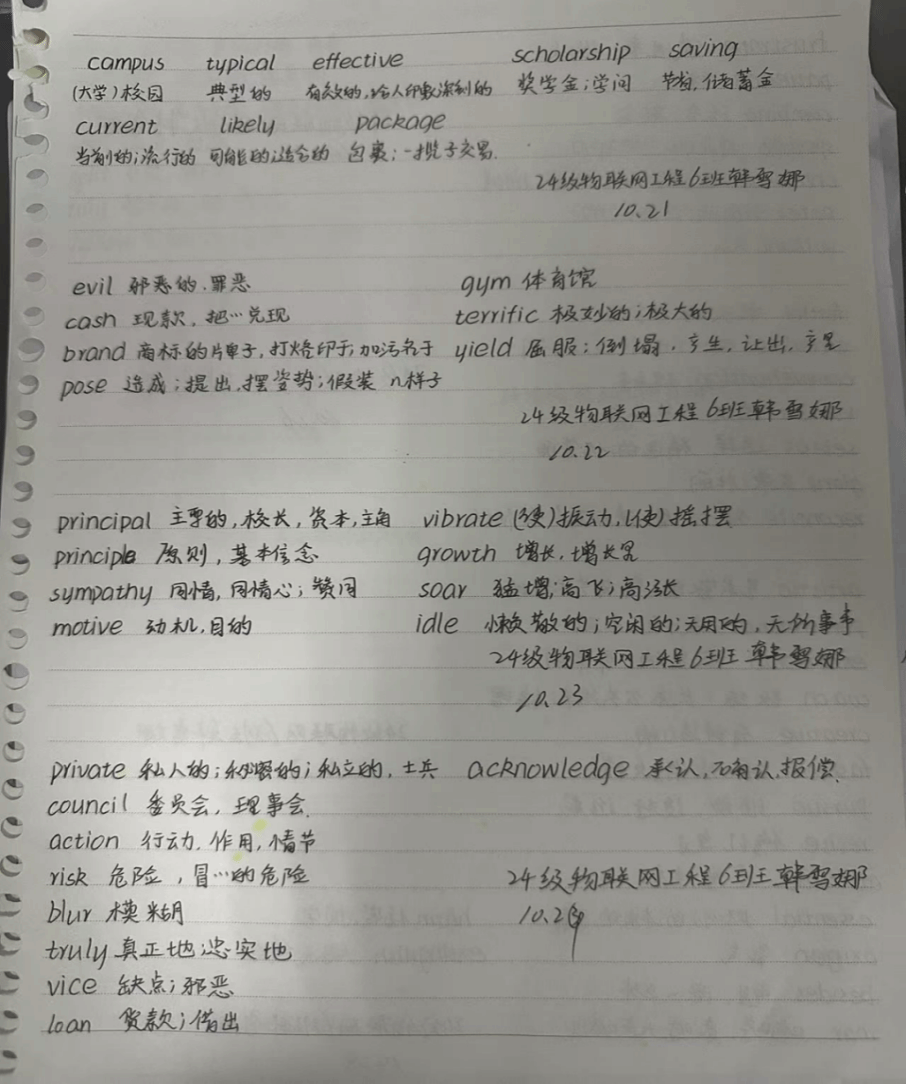 campus typical effective scholarship saving
(大学)校园 典型的 有效的,给人印象深刻的 奖学金;学问 节省,储蓄金
current likely package
当前的;流行的 可能的;适合的 包裹;一揽子交易.
24级物联网工程6班韩雪娜
10.21
evil 邪恶的.罪恶 gym 体育馆
cash 现款,把…兑现 terrific 极妙的;极大的
brand 商标的牌子,打烙印于;加污名于 yield 屈服;倒塌.产生,让出,产量
pose 造成;提出,摆姿势;假装 n样子
24级物联网工程6班韩雪娜
10.22
principal 主要的,校长,资本,主角 vibrate (使)振动,(使)摇摆
principle 原则,基本信念 growth 增长,增长量
sympathy 同情,同情心;赞同 soar 猛增;高飞;高涨长
motive 动机,目的 idle 懒散的;空闲的;无用的,无所事事
24级物联网工程6班 韩雪娜
10.23
private 私人的;秘密的;私立的,士兵 acknowledge 承认,确认,报偿
council 委员会,理事会.
action 行动.作用,情节
risk 危险,冒…的危险 24级物联网工程6班韩雪娜
blur 模糊
truly 真正地;忠实地
vice 缺点;邪恶
loan 贷款;借出